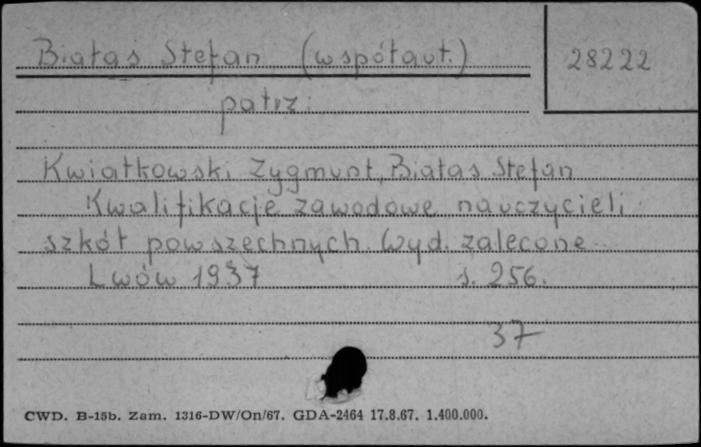 Białas Stefan (współaut.)
28222
patrz:
Kwiatkowski Zygmunt, Białas Stefan
Kwalifikacje zawodowe nauczycieli
szkół powszechnych. Wyd. zalecone
Lwów 1937 s. 256.
37
CWD. B-15b. Zam. 1316-DW/On/67. GDA-2464 17.8.67. 1.400.000.